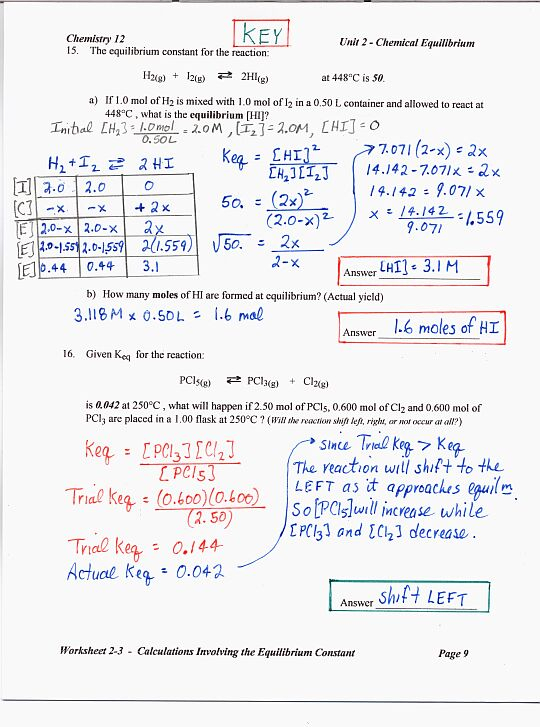 KEY
Chemistry 12 Unit 2 - Chemical Equilibrium
15. The equilibrium constant for the reaction:
H2(g) + I2(g) ⇄ 2HI(g) at 448°C is 50.
a) If 1.0 mol of H2 is mixed with 1.0 mol of I2 in a 0.50 L container and allowed to react at
448°C , what is the equilibrium [HI]?
Initial [H2] = 1.0 mol / 0.50L = 2.0 M , [I2] = 2.0M, [HI] = 0
H2 + I2 ⇄ 2 HI
[I] 2.0 2.0 0
[C] -x -x + 2x
[E] 2.0-x 2.0-x 2x
[E] 2.0-1.559 2.0-1.559 2(1.559)
[E] 0.44 0.44 3.1
Keq = [HI]² / [H2][I2]
50. = (2x)² / (2.0-x)²
√50. = 2x / 2-x
7.071(2-x) = 2x
14.142 - 7.071x = 2x
14.142 = 9.071x
x = 14.142 / 9.071 = 1.559
Answer [HI] = 3.1 M
b) How many moles of HI are formed at equilibrium? (Actual yield)
3.118M x 0.50L = 1.6 mol
Answer 1.6 moles of HI
16. Given Keq for the reaction:
PCl5(g) ⇄ PCl3(g) + Cl2(g)
is 0.042 at 250°C , what will happen if 2.50 mol of PCl5, 0.600 mol of Cl2 and 0.600 mol of
PCl3 are placed in a 1.00 flask at 250°C ? (Will the reaction shift left, right, or not occur at all?)
Keq = [PCl3][Cl2] / [PCl5]
Trial Keq = (0.600)(0.600) / (2.50)
Trial Keq = 0.144
Actual Keq = 0.042
since Trial Keq > Keq
The reaction will shift to the
LEFT as it approaches equilm.
So [PCl5] will increase while
[PCl3] and [Cl2] decrease.
Answer shift LEFT
Worksheet 2-3 - Calculations Involving the Equilibrium Constant Page 9